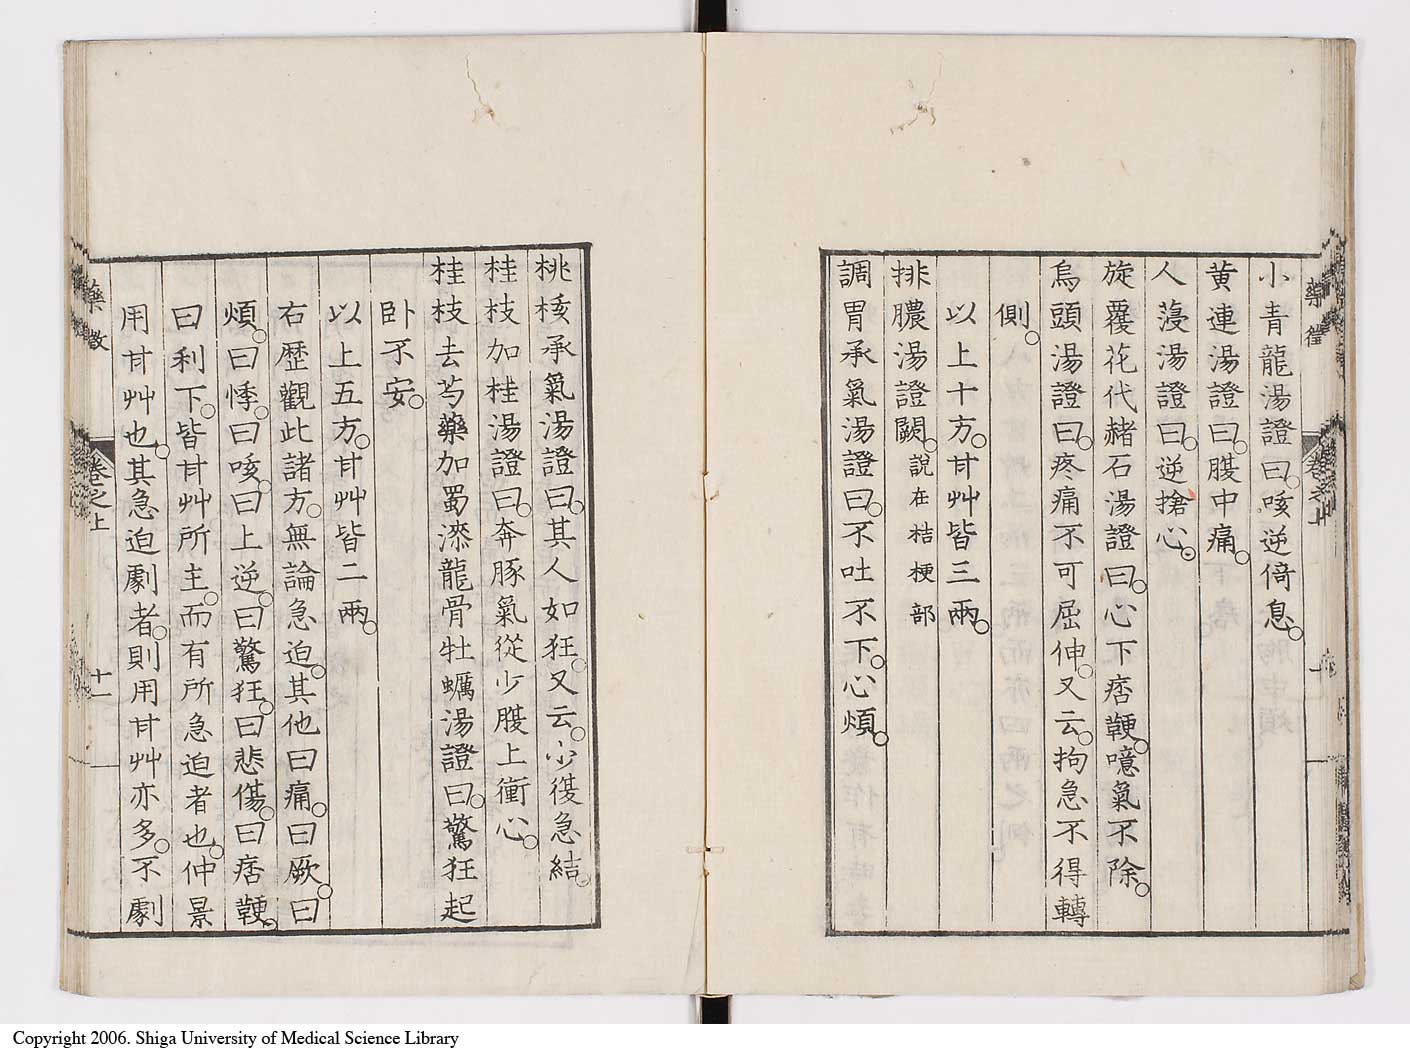 小青龍湯證曰。咳逆倚息。
黄連湯證曰。腹中痛。
人蓡湯證曰。逆搶心。
旋覆花代赭石湯證曰。心下痞鞕。噫氣不除。
烏頭湯證曰。疼痛不可屈伸。又云。拘急不得轉
側。
以上十方。甘艸皆三兩。
排膿湯證闕。說在桔梗部
調胃承氣湯證曰。不吐不下。心煩。
桃核承氣湯證曰。其人如狂。又云。少腹急結。
桂枝加桂湯證曰。奔豚氣從少腹上衝心。
桂枝去芍藥加蜀漆龍骨牡蠣湯證曰。驚狂起
卧不安。
以上五方。甘艸皆二兩。
右歴觀此諸方。無論急迫。其他曰痛。曰厥。曰
煩。曰悸。曰咳。曰上逆。曰驚狂。曰悲傷。曰痞鞕。
曰利下。皆甘艸所主。而有所急迫者也。仲景
用甘艸也。其急迫劇者。則用甘艸亦多。不劇
藥徵 卷之上 十一
Copyright 2006. Shiga University of Medical Science Library